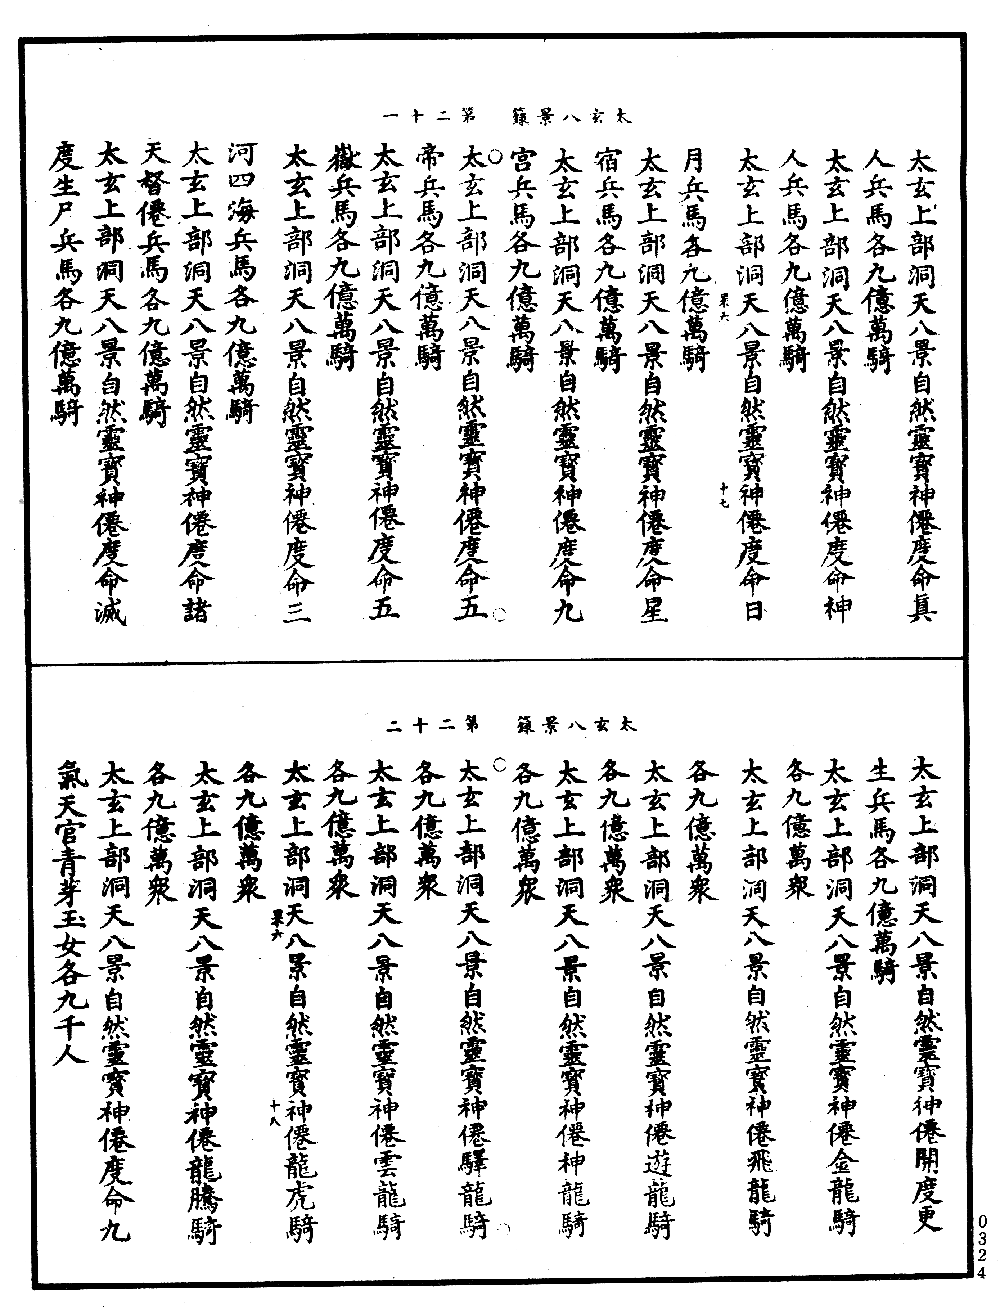 太玄八景籙　第二十一
太玄上部洞天八景自然靈寶神僊度命真
人兵馬各九億萬騎
太玄上部洞天八景自然靈寶神僊度命神
人兵馬各九億萬騎
太玄上部洞天八景自然靈寶神僊度命日
果六　十七
月兵馬各九億萬騎
太玄上部洞天八景自然靈寶神僊度命星
宿兵馬各九億萬騎
太玄上部洞天八景自然靈寶神僊度命九
宮兵馬各九億萬騎
太玄上部洞天八景自然靈寶神僊度命五
帝兵馬各九億萬騎
太玄上部洞天八景自然靈寶神僊度命五
嶽兵馬各九億萬騎
太玄上部洞天八景自然靈寶神僊度命三
河四海兵馬各九億萬騎
太玄上部洞天八景自然靈寶神僊度命諸
天督僊兵馬各九億萬騎
太玄上部洞天八景自然靈寶神僊度命滅
度生尸兵馬各九億萬騎
太玄八景籙　第二十二
太玄上部洞天八景自然靈寶神僊開度更
生兵馬各九億萬騎
太玄上部洞天八景自然靈寶神僊金龍騎
各九億萬衆
太玄上部洞天八景自然靈寶神僊飛龍騎
各九億萬衆
太玄上部洞天八景自然靈寶神僊遊龍騎
各九億萬衆
太玄上部洞天八景自然靈寶神僊神龍騎
各九億萬衆
太玄上部洞天八景自然靈寶神僊驛龍騎
各九億萬衆
太玄上部洞天八景自然靈寶神僊雲龍騎
各九億萬衆
太玄上部洞天八景自然靈寶神僊龍虎騎
果六　十八
各九億萬衆
太玄上部洞天八景自然靈寶神僊龍騰騎
各九億萬衆
太玄上部洞天八景自然靈寶神僊度命九
氣天官青芽玉女各九千人
0324